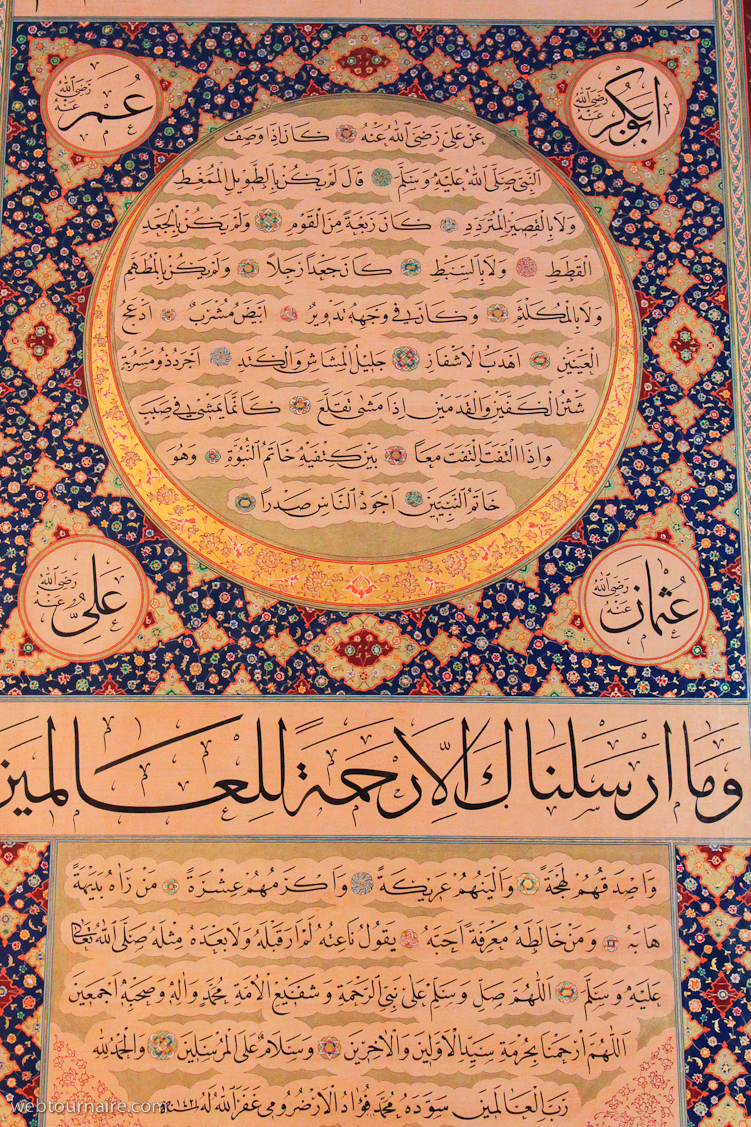 ابوبكر رضى الله عنه
عمر رضى الله عنه
عَنْ عَلِىٍّ رَضِىَ اللّٰهُ عَنْهُ كَانَ اِذَا وَصَفَ
النَّبِىَّ صَلَّى اللّٰهُ عَلَيْهِ وَسَلَّمَ قَالَ لَمْ يَكُنْ بِالطَّوِيلِ الْمُمَّغِطِ
وَلَا بِالْقَصِيرِ الْمُتَرَدِّدِ كَانَ رَبْعَةً مِنَ الْقَوْمِ وَلَمْ يَكُنْ بِالْجَعْدِ
الْقَطِطِ وَلَا بِالسَّبِطِ كَانَ جَعْدًا رَجِلًا وَلَمْ يَكُنْ بِالْمُطَهَّمِ
وَلَا بِالْمُكَلْثَمِ وَكَانَ فِى وَجْهِهِ تَدْوِيرٌ اَبْيَضُ مُشْرَبٌ اَدْعَجُ
الْعَيْنَيْنِ اَهْدَبُ الْاَشْفَارِ جَلِيلُ الْمُشَاشِ وَالْكَتَدِ اَجْرَدُ ذُو مَسْرُبَةٍ
شَثْنُ الْكَفَّيْنِ وَالْقَدَمَيْنِ اِذَا مَشٰى تَقَلَّعَ كَاَنَّمَا يَمْشِى فِى صَبَبٍ
وَاِذَا الْتَفَتَ الْتَفَتَ مَعًا بَيْنَ كَتِفَيْهِ خَاتَمُ النُّبُوَّةِ وَهُوَ
خَاتَمُ النَّبِيِّينَ اَجْوَدُ النَّاسِ صَدْرًا
عثمان رضى الله عنه
على رضى الله عنه
وَمَا اَرْسَلْنَاكَ اِلَّا رَحْمَةً لِلْعَالَمِينَ
وَاَصْدَقُهُمْ لَهْجَةً وَاَلْيَنُهُمْ عَرِيكَةً وَاَكْرَمُهُمْ عِشْرَةً مَنْ رَاٰهُ بَدِيهَةً
هَابَهُ وَمَنْ خَالَطَهُ مَعْرِفَةً اَحَبَّهُ يَقُولُ نَاعِتُهُ لَمْ اَرَ قَبْلَهُ وَلَا بَعْدَهُ مِثْلَهُ صَلَّى اللّٰهُ تَعَالٰى
عَلَيْهِ وَسَلَّمَ اَللّٰهُمَّ صَلِّ وَسَلِّمْ عَلٰى نَبِىِّ الرَّحْمَةِ وَشَفِيعِ الْاُمَّةِ مُحَمَّدٍ وَاٰلِهِ وَصَحْبِهِ اَجْمَعِينَ
اَللّٰهُمَّ ارْحَمْنَا بِحُرْمَةِ سَيِّدِ الْاَوَّلِينَ وَالْاٰخِرِينَ وَسَلَامٌ عَلَى الْمُرْسَلِينَ وَالْحَمْدُ لِلّٰهِ
رَبِّ الْعَالَمِينَ سَوَّدَهُ مُحَمَّد فُؤَاد الْاَرْضُرُومِى غَفَرَ اللّٰهُ لَهُ
webtournaire.com